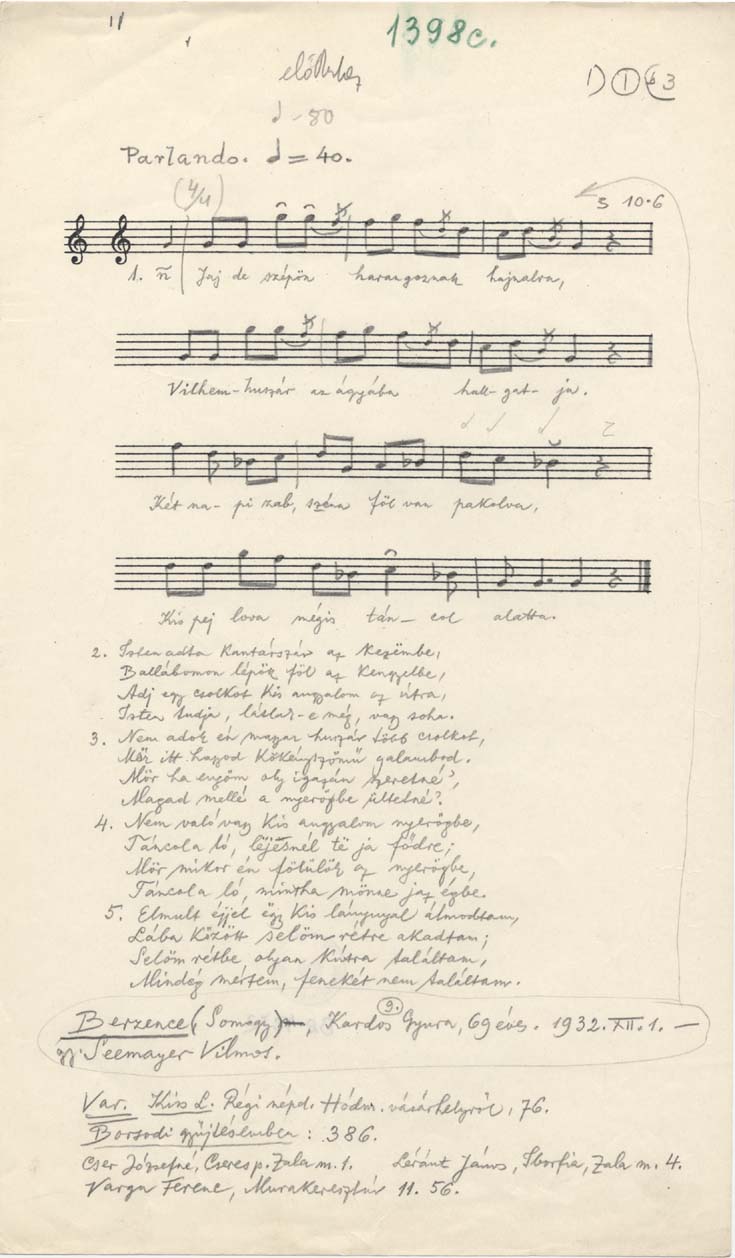 1398c.
Parlando. = 40.
(4/4)
5 10·6
1. Jaj de szépön harangoznak hajnalra,
Vilhem-huszár az ágyába hall-gat-ja.
Két na-pi zab, széna föl van pakolva,
Kis pej lova mégis tán-col alatta.
2. Isten adta kantárszár az kezömbe,
Ballábomon lépök föl az kengyelbe,
Adj egy csolkot kis angyalom az útra,
Isten tudja, látlak-e még, vagy soha.
3. Nem adok én magyar huszár több csolkot,
Mör itt hagyod kökényszömű galambod.
Mör ha engöm oly igazán szeretné?,
Magad mellé a nyerögbe ültetné?.
4. Nem való vagy kis angyalom nyerögbe,
Táncol a ló, të ja födre;
Mör mikor én fölülök az nyerögbe,
Táncol a ló, mintha mönne jaz égbe.
5. Elmult éjjel egy kis lánynyal álmodtam,
Lába között selöm rétre akadtam;
Selöm rétbe olyan kútra találtam,
Mindég mértem, fenekét nem találtam.
Berzence (Somogy), Kardos Gyura, 69 éves. 1932. XII. 1. —
gy. Seemayer Vilmos.
Var. Kiss L. Régi népd. Hódm. vásárhelyről, 76.
Borsodi gyűjtésemben: 386.
Cser Józsefné, Cseresp. Zala m. 1. János, Zala m. 4.
Varga Ferenc, Murakeresztúr 11. 56.